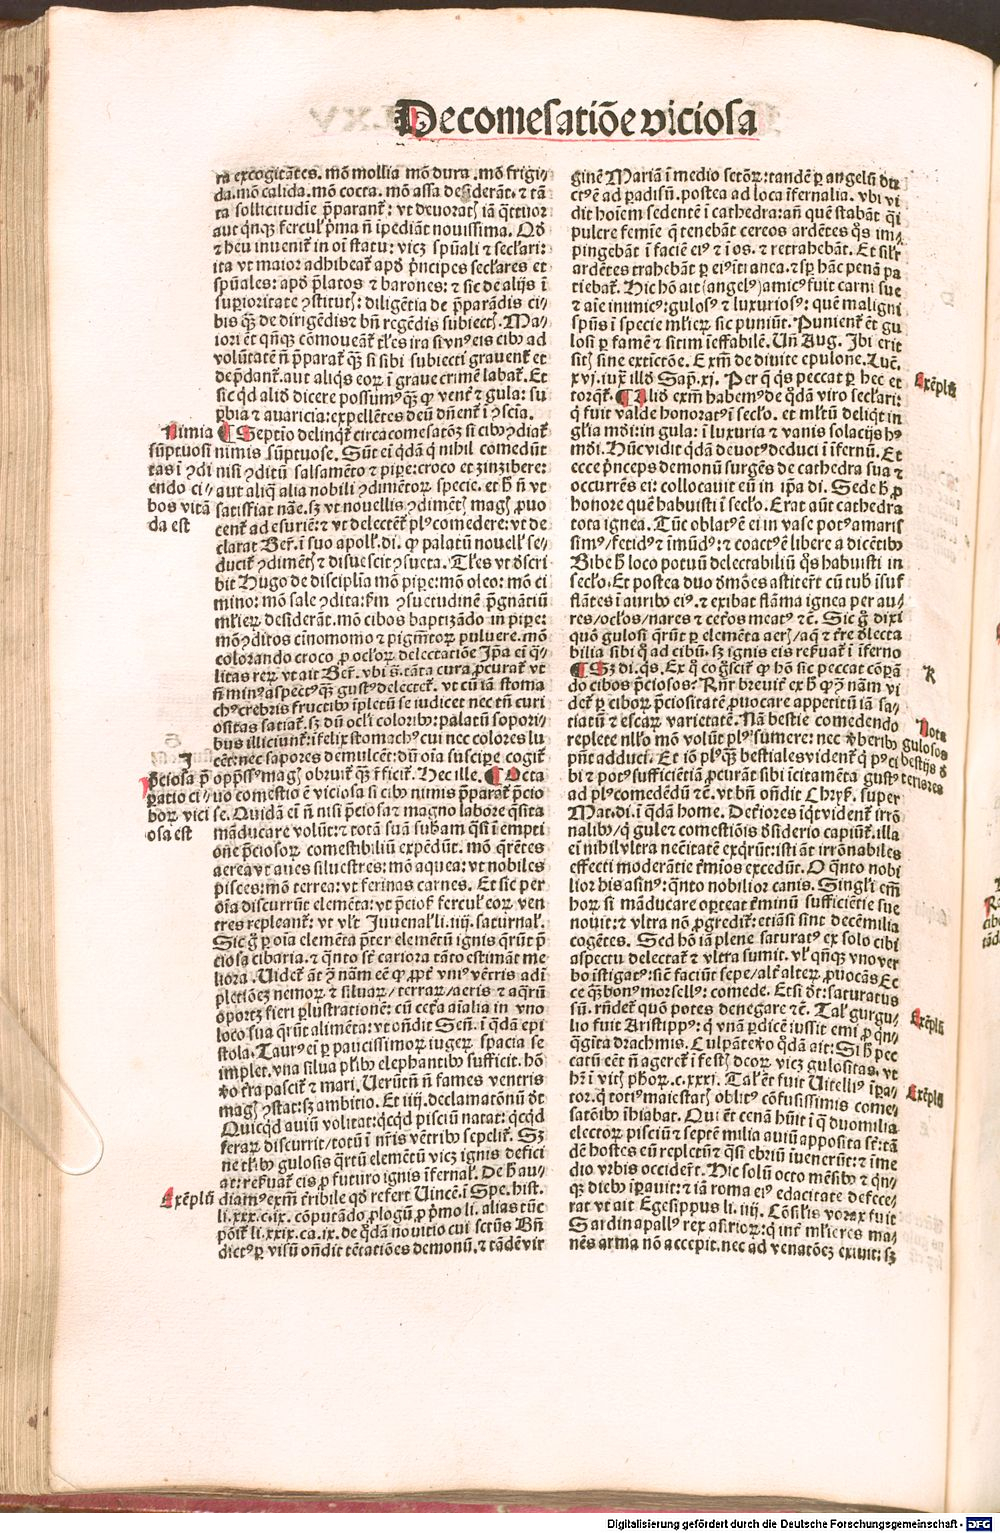 De comesatiōe viciosa
ra excogitātes. mō mollia mō dura. mō frigi⸗
da. mō calida. mō cocta. mō assa desiderāt. ⁊ tā
ta sollicitudīe p̄parant᷑: vt
aut qnqꝫ fercul' p̄ma n̄ īpediāt nouissima. Qď
⁊ heu inuenit᷑ in oī statu: vicꝫ spūali ⁊ sećlari:
ita vt maior adhibeat᷑ apď p̄ncipes sećlares et
spūales: apď p̄latos ⁊ barones: ⁊ sic de alijs ī
suꝑioritate ꝯstitut: diligētia de p̄parādis ci⸗
bis qꝫ de dirigēdis ⁊ bn̄ regēdis subiect. Ma⸗
iori et qnqꝫ cōmoueāt ira si vnꝰ eis cibꝰ ad
volūtatē n̄ p̄parat᷑ qꝫ si sibi subiecti grauent᷑ et
dep̄dant᷑. aut aliqs eoꝝ ī graue crimē labat᷑. Et
sic qď aliď dicere possumꝰ qꝫ ꝙ vent᷑ ⁊ gula: su
ꝑbia ⁊ auaricia: expellētes deū dn̄ent᷑ ī ꝯscia.
¶ Septīo delinqt᷑ circa comesatōꝫ si cibꝰ ꝯdiat᷑
nimis sūptuose. Sūt eī qdā q nihil comedūt
nisi ꝯditū salsamēto ⁊ piꝑe: croco et zinzibere:
aut aliq alia nobili ꝯdimētoꝝ specie. et h̄ n̄ vt
satisfiat nāe. sꝫ vt nouellis ꝯdimēt mag ꝓuo
cent᷑ ad esuriē: ⁊ vt delectet᷑ plꝰ comedere: vt de
clarat Ber̄. ī suo apoll'. di. ꝙ palatū nouell' se⸗
ducit᷑ ꝯdimēt ⁊ disuescit ꝯsueta. Tles vt ďscri
bit Hugo de disciplīa mō piꝑe: mō oleo: mō ci
mino: mō sale ꝯdita: fm̄ ꝯsuetudinē p̄gnātiū
ml'ieꝝ desiderāt. mō cibos baptizādo in piꝑe:
mō ꝯditos cīnomomo ⁊ pigmtoꝝ puluere. mō
colorando croco ꝓ ocloꝝ delectatiōe Jp̄a eī q⸗
litas reꝝ vt ait Ber̄. vbi s. tāta cura ꝓcurat᷑ vt
n̄ minꝰ aspectꝰ qꝫ gustꝰ delectet᷑. vt cū iā stoma
chꝰ crebris fructibꝰ īpletū se iudicet nec tn̄ curi
ositas satiat᷑. sꝫ dū ocli coloribꝰ: palatū sapori⸗
bus illiciunt᷑: īfelix stomachꝰ cui nec colores lu
cēt: nec sapores demulcēt: dū oīa suscipe cogit᷑
opp̄ssꝰ mag obruit᷑ qꝫ r̄ficit᷑. Hec ille. ¶ Octa
uo comestio ē viciosa si cibꝰ nimis p̄parat᷑ p̄cio
se. Quidā eī n̄ nisi p̄ciosa ⁊ magno labore qsita
māducare volūt: ⁊ totā suā subam qsi ī empti
one p̄ciosoꝝ comestibiliū expēdūt. mō qrētes
aerea vt aues siluestres: mō aquea: vt nobiles
pisces: mō terrea: vt ferinas carnes. Et sic per
oīa discurrūt elemēta: vt p̄ciosꝰ fercul' eoꝝ ven
tres repleant᷑: vt Juuenal' li. iiij. saturnal'.
Sic gͦ ꝑ oīa elemēta p̄ter elemētū ignis qrūt p̄
ciosa cibaria. ⁊ qnto sēt cariora tāto estimāt me
liora. Uidet᷑ āt ꝯ nām eē ꝙ ꝓpt᷑ vniꝰ vētris adī
pletiōeꝫ nemoꝝ ⁊ siluaꝝ/ terraꝝ/ aeris ⁊ aqrū
oporteꝫ fieri ꝑlustratione: cū cetˀa aīalia in vno
loco sua qrūt alimēta: vt oñdit Sen̄. ī qdā epi
stola. Taurꝰ eī ꝑ paucissimoꝝ iugeꝝ spacia se
implet. vna silua pl'ibꝰ elephantibꝰ sufficit. hō
ꝟo tˀra pascit᷑ ⁊ mari. Uerūtn̄ n̄ fames ventris
mag ꝯstat: sꝫ ambitio. Et iiij. declamatōnū ďt
Quicqd auiū volitat: qcqd pisciū natat: qcqd
feraꝝ discurrit/ totū ī nr̄is vētribꝰ sepelit᷑. Sꝫ
ne tl'ibꝰ gulosis qrtū elemētū vicꝫ ignis defici
at: reẜuat᷑ eis ꝓ futuro ignis īfernal'. De h̄ au⸗
diamꝰ exm̄ tˀribile qď refert Uincē. ī Spe. hist.
li. xxx. c. ix. cōputādo ꝓlogū ꝓ p̄mo li. alias tūc
pōit᷑ li. xxix. ca. ix. de qdā nouitio cui sctūs Bn̄
dictꝰ ꝑ visū oñdit tētatiōes demonū. ⁊ tādē vir
Nimia
sūptuosi
tas ī ꝯdi
endo ci⸗
bos vitā
da est
J
p̄ciosa p̄
ꝑatio ci⸗
boꝝ vici
osa est
Exēplū
ginē Mariā ī medio sctōꝝ: tandē ꝑ angelū du
ctꝰ ē ad ꝑadisū. postea ad loca īfernalia. vbi vi
dit hoīem sedentē ī cathedra: añ quē stabāt qi
pulcre femīe q tenebāt cereos ardētes qs im⸗
pingebāt ī faciē eiꝰ ⁊ ī os. ⁊ retrahebāt. Et silr̄
ardētes trahebāt ꝑ eiꝰ īti anca. ⁊ sꝑ hāc penā pa
tiebat᷑. Hic hō ait (angelꝰ) amicꝰ fuit carni sue
⁊ aīe inimicꝰ: gulosꝰ ⁊ luxuriosꝰ: quē maligni
spūs ī specie ml'ieꝝ sic puniūt. Punient᷑ et gu
losi ꝑ famē ⁊ sitim īeffabilē. Un̄ Aug. Jbi erit
sit sine extictōe. Exm̄ de diuite epulone. Luc.
xvj. iux̄ illď Sap. xj. Per q qs peccat ꝑ hec et
torqt᷑. ¶ Aliď exm̄ habemꝰ de qdā viro sećlari:
q fuit valde honoratꝰ ī seclo. et mltū deliqt in
glia mōi: in gula: ī luxuria ⁊ vanis solacijs hꝰ
mōi. Hūc vidit qdā deuotꝰ deduci ī īfernū. Et
ecce p̄nceps demonū surgēs de cathedra sua ⁊
occurrēs ei: collocauit eū in ip̄a di. Sede h̄ ꝓ
honore quē habuisti ī seclo. Erat aūt cathedra
tota ignea. Tūc oblatꝰ ē ei in vase potꝰ amaris
simꝰ/ fetidꝰ ⁊ īmūdꝰ: ⁊ coactꝰ ē libere a dicētibꝰ
Bibe h̄ loco potuū delectabiliū qs habuisti in
seclo. Et postea duo dmōes astiter̄t cū tub īsuf
flātes ī auribꝰ eiꝰ. ⁊ exibat flāma ignea per au⸗
res/ oclos/ nares ⁊ cetˀos meatꝰ ⁊c̄. Sic gͦ dixi
quō gulosi qrūt ꝑ elemēta aer/ aq ⁊ tˀre ďlecta
bilia sibi q ad cibū. sꝫ ignis eis reẜuat᷑ ī īferno
¶ Sꝫ di. qs. Ex q cogscit᷑ ꝙ hō sic peccat cōꝑā
do cibos p̄ciosos? Rn̄r breuit᷑ ex h̄ ꝙ ꝯ nām vi
det᷑ ꝑ ciboꝝ p̄ciositatē ꝓuocare appetitū iā sa⸗
tiatū ⁊ escaꝝ varietatē. Nā bestie comedendo
replete nllo mō volūt plꝰ sumere: nec ꝟberibꝰ
pn̄t adduci. Et iō plꝰ qꝫ bestiales vident᷑ q p̄ ci
bi ⁊ potꝰ sufficiētiā ꝓcurāt sibi īcitamēta gustꝰ
ad plꝰ comedēdū ⁊c̄. vt bn̄ oñdit Chryẜ. super
Mat. di. ī qdā home. Detˀiores iqt vident᷑ irrō
nalibꝰ/ q gule ⁊ comestiōis ďsiderio capiūt᷑. illa
eī nihil vltra necītatē exqrūt: isti āt irrōnabiles
effecti moderātie tˀmīos excedūt. O qnto nobi
lior his asinꝰ: qnto nobilior canis. Singl'i em̄
hoꝝ si māducare oꝑteat tˀminū sufficiētie sue
nouit: ⁊ vltra nō ꝓgredit᷑: etiāsi sint decē milia
cogētes. Sed hō iā plene saturatꝰ ex solo cibi
aspectu delectat᷑ ⁊ vltra sumit. vl' qnqꝫ vno ver
bo īstigatꝰ: sic faciūt sepe/ alt᷑ alteꝝ ꝓuocās Ec
ce qꝫ bonꝰ morsellꝰ: comede. Etsi ďt: saturatus
sū. rn̄det᷑ quō potes denegare ⁊c̄. Tal' gurgu⸗
lio fuit Aristippꝰ: q vnā ꝑdicē iussit emi ꝓ qn⸗
qgīta drachmis. Culpāte ꝟo qdā ait: Si h̄ pec
catū eēt n̄ agerēt᷑ ī fest deoꝝ. vicꝫ gulositas. vt
hr̄ ī vit ph̄oꝝ. c. xxxi. Tal' et fuit Uitelliꝰ īꝑa⸗
tor. q totiꝰ maiestat oblitꝰ cōfusissimis come⸗
satōibꝰ īhiabat. Qui et cenā hūit ī q duo milia
electoꝝ pisciū ⁊ septē milia auiū apposita sēt: tā
dē hostes eū repletū ⁊ qsi ebriū īuenerūt: ⁊ ī me
dio vrbis occiderūt. Hic solū octo mēsibꝰ ⁊ qn⸗
qꝫ diebꝰ īꝑauit: ⁊ iā roma eiꝰ edacitate defece⸗
rat vt ait Egesippus li. iiij. Cōsilis vorax fuit
Sardinapallꝰ rex assirioꝝ: q int᷑ ml'ieres ma⸗
nēs arma nō accepit. nec ad venatōeꝫ exiuit: sꝫ
Exēplū
K
Nota
gulosos
bestijs ď
teriores
Exēplū
Exēplū
Digitalisierung gefördert durch die Deutsche Forschungsgemeinschaft - DFG